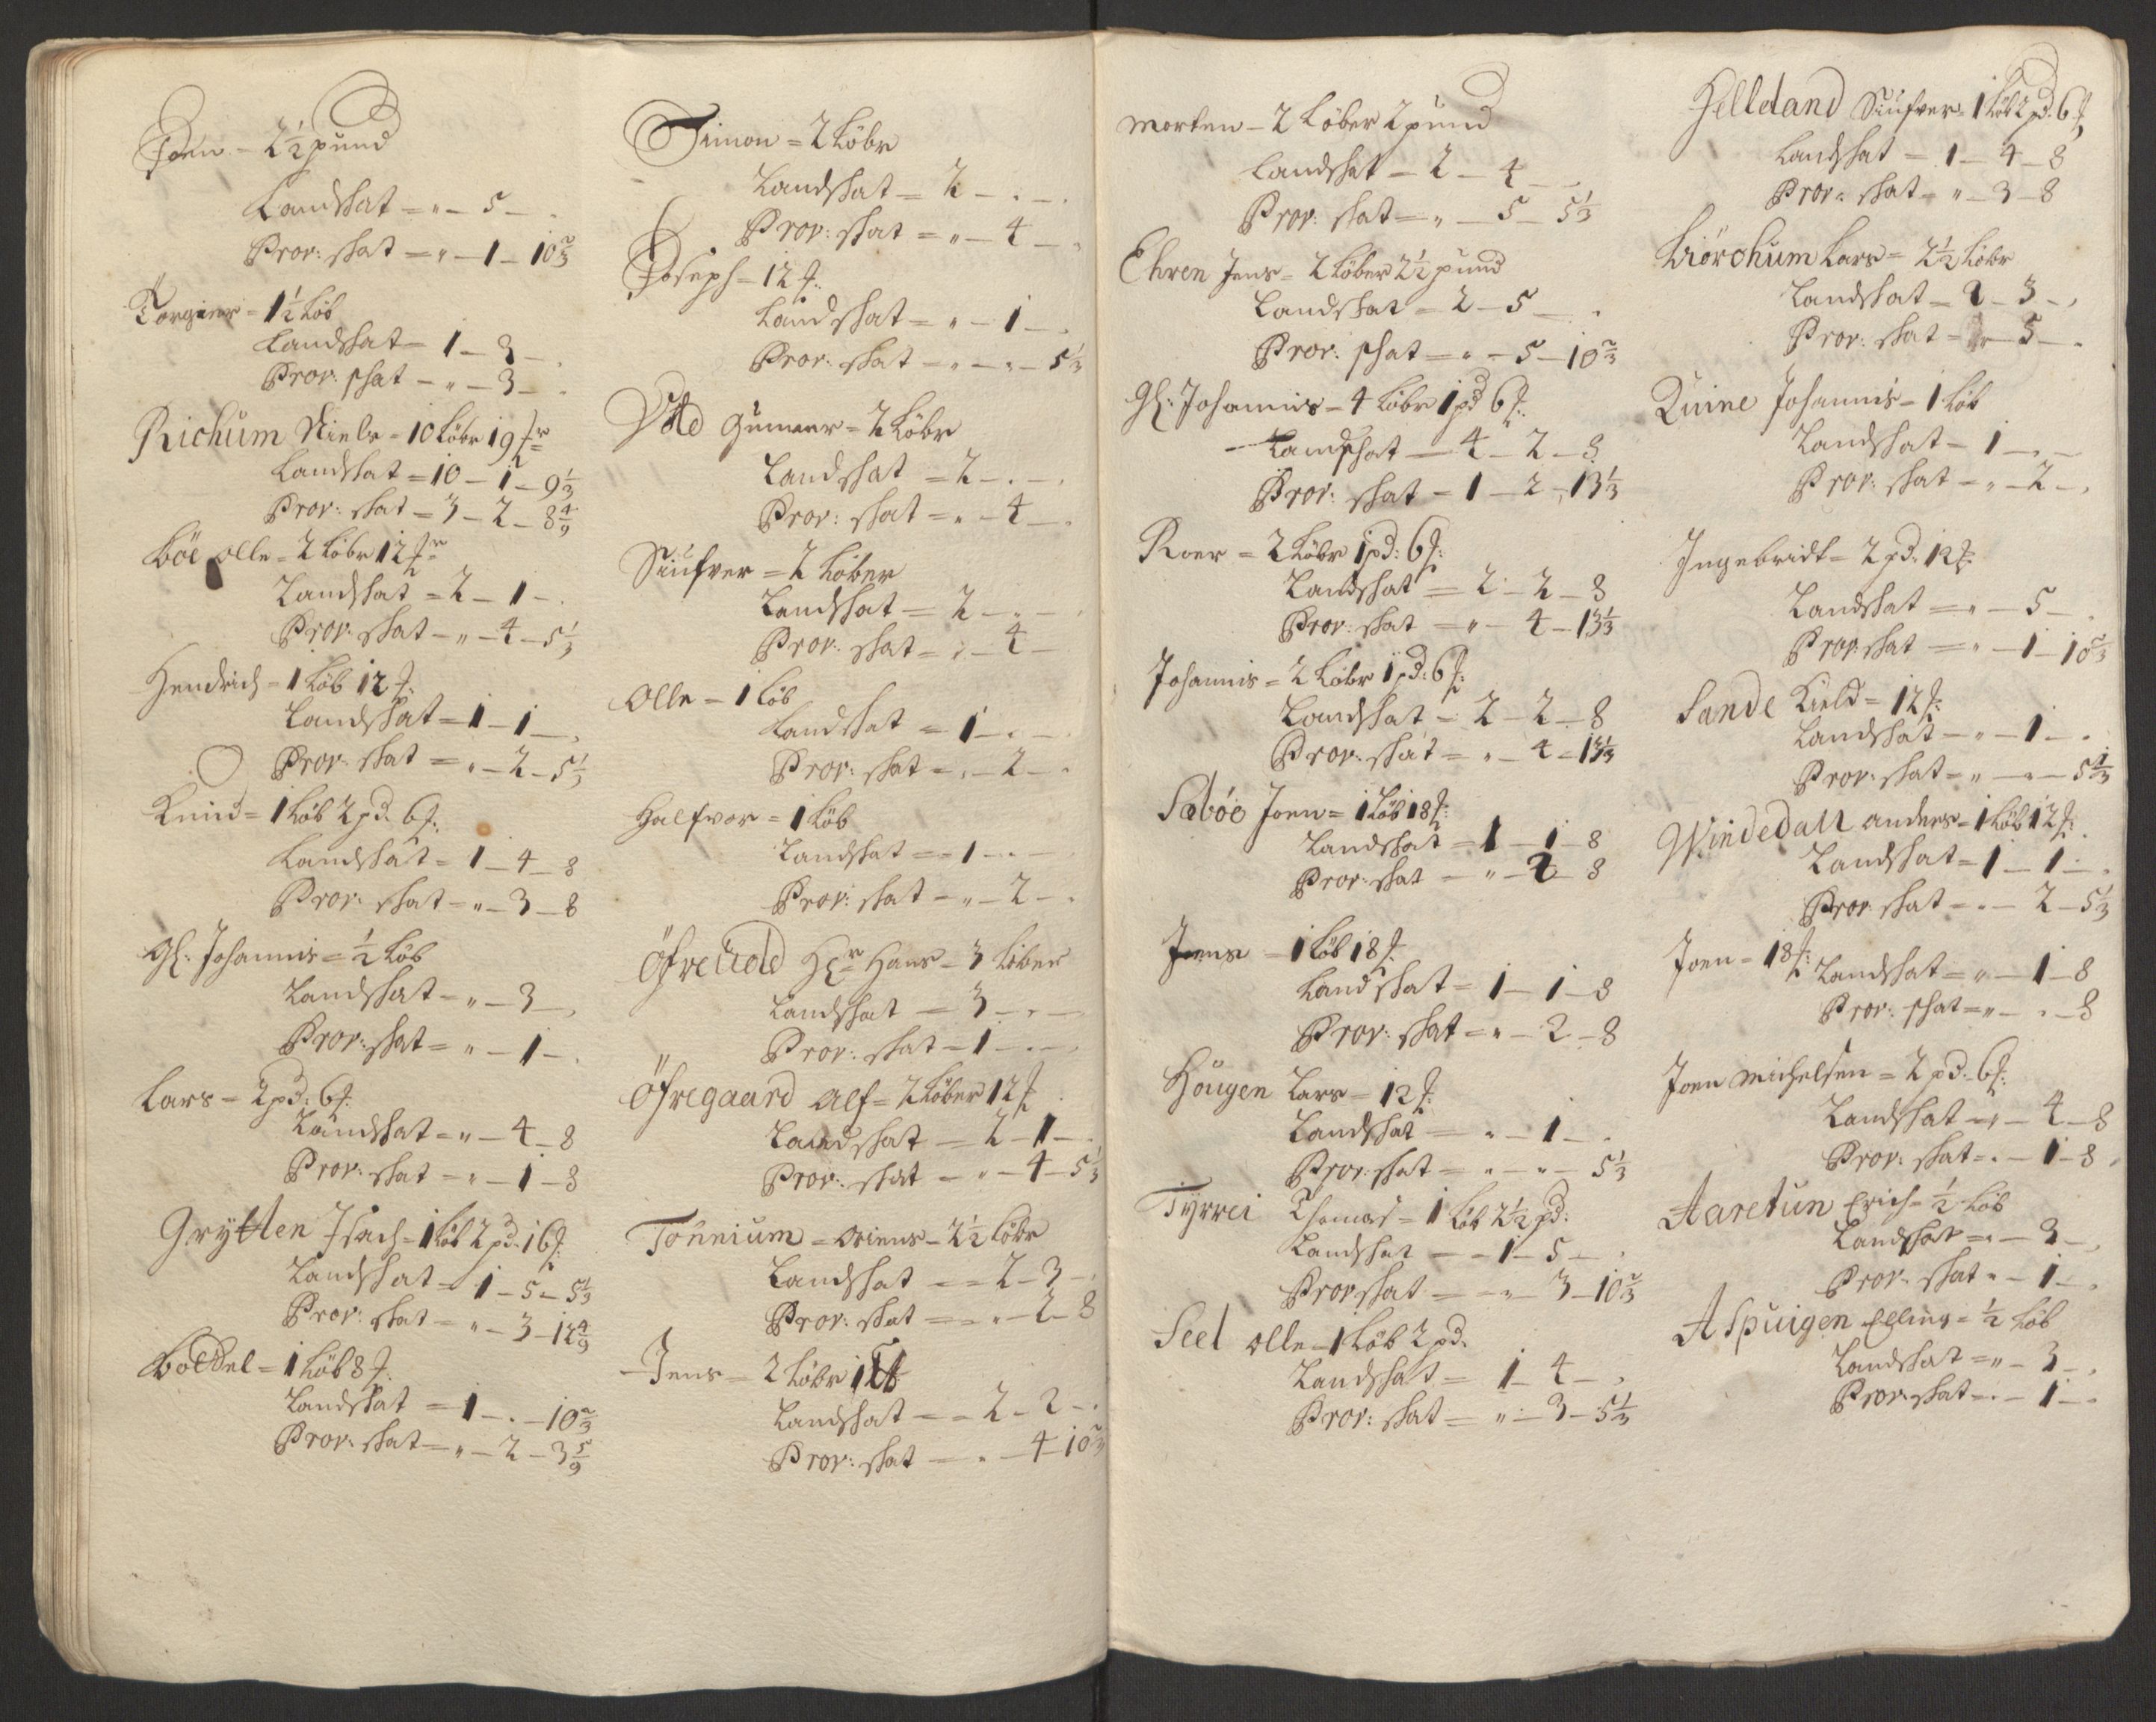 Joen – 2½ pund
Landskat = „ – 5 – .
Prov: skat = „ – 1 – 10⅔
Torgier – 1½ Löb
Landskat – 1 – 3 – .
Prov: skat – „ – 3 – .
Richum Niels – 10 Löbr 19 ℔r
Landskat = 10 – 1 – 9⅓
Prov: skat = 3 – 2 – 8 4/9
Böe olle – 2 Löbr 12 ℔r
Landskat = 2 – 1 – .
Prov: skat – „ – 4 – 5⅓
Hendrich – 1 Löb 12 ℔:
Landskat – 1 – 1 – .
Prov: skat = „ – 2 – 5⅓
Knud = 1 Löb 2 pd. 6 ℔:
Landskat – 1 – 4 – 8
Prov: skat – „ – 3 – 8
Gl: Johannis = ½ Löb
Landskat – „ – 3 – .
Prov: skat = „ – 1 – .
Lars – 2 pd: 6 ℔:
Landskat = „ – 4 – 8
Prov: skat – „ – 1 – 8
Grytten Isach – 1 Löb 2 pd. 16 ℔:
Landskat – 1 – 5 – 5⅓
Prov: skat – „ – 3 – 12 4/9
Boldel = 1 Löb 8 ℔:
Landskat = 1 – . – 10⅔
Prov: skat – „ – 2 – 3 5/9
Simon = 2 Löbr
Landskat = 2 – . – .
Prov: skat = „ – 4 – .
Joseph – 12 ℔:
Landskat = „ – 1 – .
Prov: skat – „ – „ – 5⅓
Gunner = 2 Löbr
Landskat = 2 – . – .
Prov: skat = „ – 4 – .
Siufver = 2 Löber
Landskat = 2 – . –
Prov: skat = „ – 4 –
Olle – 1 Löb
Landskat = 1 – . –
Prov: skat = „ – 2 – .
Halfvor = 1 Löb
Landskat = 1 – . –
Prov: skat – „ – 2 – .
Hr Hans – 3 Löber
Landskat = 3 – . –
Prov: skat – 1 – . – .
Öfregaard Alf = 2 Löber 12 ℔
Landskat = 2 – 1 – .
Prov: skat – „ – 4 – 5⅓
Tönnium – oriens – 2½ Löbr
Landskat – 2 – 3 – .
Prov: skat – „ – 2 – 8
Jens – 2 Löbr 1
Landskat – 2 – 2 – .
Prov: skat – „ – 4 – 10⅔
Morten – 2 Löber 2 pund
Landskat – 2 – 4 – .
Prov: skat – „ – 5 – 5⅓
Ehren Jens – 2 Löber 2½ pund
Landskat – 2 – 5 – .
Prov: skat – „ – 5 – 10⅔
Gl: Johannis – 4 Löbr 1 pd 6 ℔:
Landskat – 4 – 2 – 8
Prov: skat – 1 – 2 – 13⅓
Roer = 2 Löbr 1 pd: 6 ℔:
Landskat = 2 – 2 – 8
Prov: skat = „ – 4 – 13⅓
Johannis = 2 Löbr 1 pd: 6 ℔:
Landskat – 2 – 2 – 8
Prov: skat = „ – 4 – 13⅓
Sæbóe Joen = 1 Löb 18 ℔:
Landskat = 1 – 1 – 8
Prov: skat – „ – 2 – 8
Jens – 1 Löb 18 ℔
Landskat = 1 – 1 – 8
Prov: skat = „ – 2 – 8
Hougen Lars – 12 ℔:
Landskat – „ – 1 – .
Prov: skat – „ – „ – 5⅓
Tyrrei Thomas = 1 Löb 2½ pd:
Landskat – 1 – 5 – .
Prov skat – „ – 3 – 10⅔
Seel olle – 1 Löb 2 pd.
Landskat = 1 – 4 – .
Prov: skat = „ – 3 – 5⅓
Helleland Siufver – 1 Löb 2 pd. 6 ℔
Landskat – 1 – 4 – 8
Prov: skat = „ – 3 – 8
Biörchum Lars = 2½ Löbr
Landskat – 2 – 3 – .
Prov: skat – „ – 5 – .
Quine Johannis – 1 Löb
Landskat – 1 – . –
Prov: skat – „ – 2 – .
Ingebridt – 2 pd. 12 ℔:
Landskat = „ – 5 – .
Prov skat = „ – 1 – 10⅔
Sande Kield = 12 ℔:
Landskat – „ – 1 – .
Prov: skat = „ – „ – 5⅓
Windedall anders – 1 Löb 12 ℔:
Landskat = 1 – 1 – .
Prov skat – „ – 2 – 5⅓
Joen – 18 ℔:
Landskat = „ – 1 – 8
Prov: skat = „ – . – 8
Joen Michelsen = 2 pd – 6 ℔:
Landskat – „ – 4 – 8
Prov: skat – „ – 1 – 8
Aaretun Erich – ½ Löb
Landskat – „ – 3 – .
Prov: skat – „ – 1 – .
Aspuigen Elling = ½ Löb
Landskat = „ – 3 – .
Prov: skat – „ – 1 – .